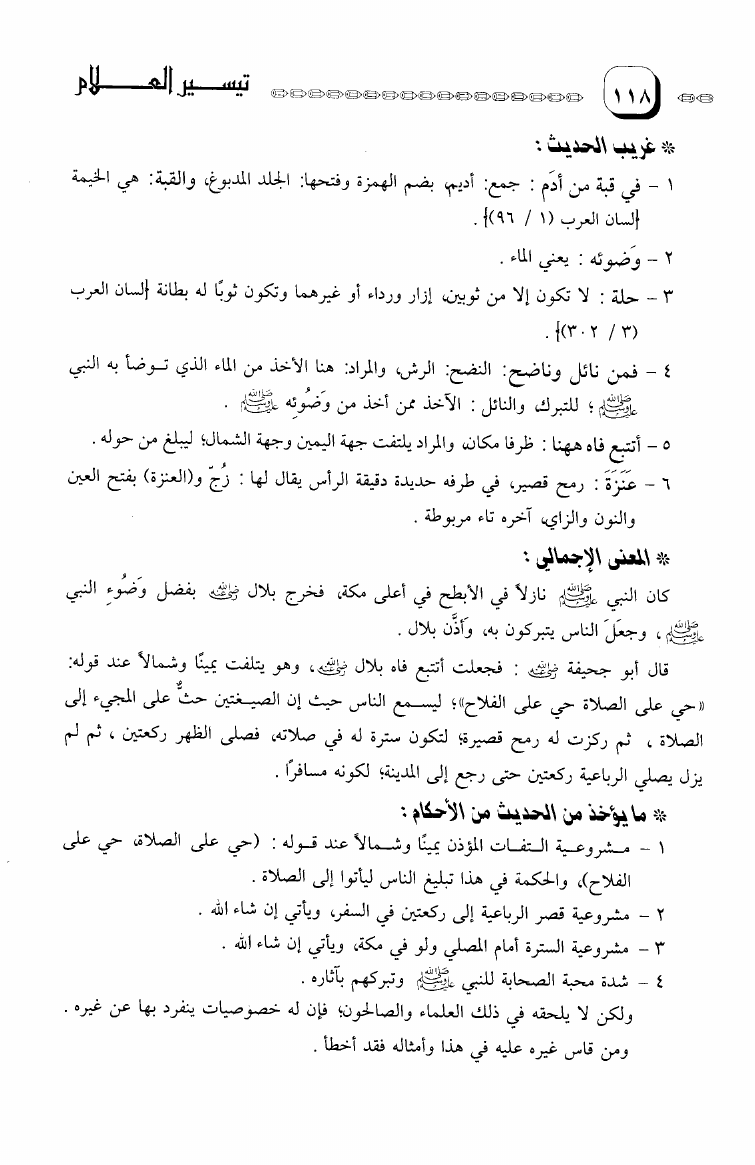 ١١٨ تيسير العلام
* غريب الحديث :
١ - في قبة من أدَم : جمع: أديم، بضم الهمزة وفتحها: الجلد المدبوغ، والقبة: هي الخيمة
{لسان العرب (١ / ٩٦)} .
٢ - وَضوئه : يعني الماء .
٣ - حلة : لا تكون إلا من ثوبين، إزار ورداء أو غيرهما وتكون ثوبًا له بطانة {لسان العرب
(٣ / ٣٠٢)} .
٤ - فمن نائل وناضح: النضح: الرش، والمراد: هنا الأخذ من الماء الذي توضأ به النبي
ﷺ ؛ للتبرك، والنائل : الآخذ ممن أخذ من وَضُوئِه ﷺ .
٥ - أتتبع فاه ههنا : ظرفا مكان، والمراد يلتفت جهة اليمين وجهة الشمال؛ ليبلغ من حوله .
٦ - عَنَزَةَ : رمح قصير، في طرفه حديدة دقيقة الرأس يقال لها : زُجّ و(العنزة) بفتح العين
والنون والزاي، آخره تاء مربوطة .
* المعنى الإجمالي :
كان النبي ﷺ نازلاً في الأبطح في أعلى مكة، فخرج بلال رضي الله عنه بفضل وَضُوءِ النبي
ﷺ ، وجعلَ الناس يتبركون به، وأذَّن بلال .
قال أبو جحيفة رضي الله عنه : فجعلت أتتبع فاه بلال رضي الله عنه، وهو يتلفت يمينًا وشمالاً عند قوله:
«حي على الصلاة حي على الفلاح»؛ ليسمع الناس حيث إن الصيغتين حثٌّ على المجيء إلى
الصلاة ، ثم ركزت له رمح قصيرة؛ لتكون سترة له في صلاته، فصلى الظهر ركعتين ، ثم لم
يزل يصلي الرباعية ركعتين حتى رجع إلى المدينة؛ لكونه مسافرًا .
* ما يؤخذ من الحديث من الأحكام :
١ - مشروعية التفات المؤذن يمينًا وشمالاً عند قوله : (حي على الصلاة، حي على
الفلاح)، والحكمة في هذا تبليغ الناس ليأتوا إلى الصلاة .
٢ - مشروعية قصر الرباعية إلى ركعتين في السفر، ويأتي إن شاء الله .
٣ - مشروعية السترة أمام المصلي ولو في مكة، ويأتي إن شاء الله .
٤ - شدة محبة الصحابة للنبي ﷺ وتبركهم بآثاره .
ولكن لا يلحقه في ذلك العلماء والصالحون؛ فإن له خصوصيات ينفرد بها عن غيره .
ومن قاس غيره عليه في هذا وأمثاله فقد أخطأ .